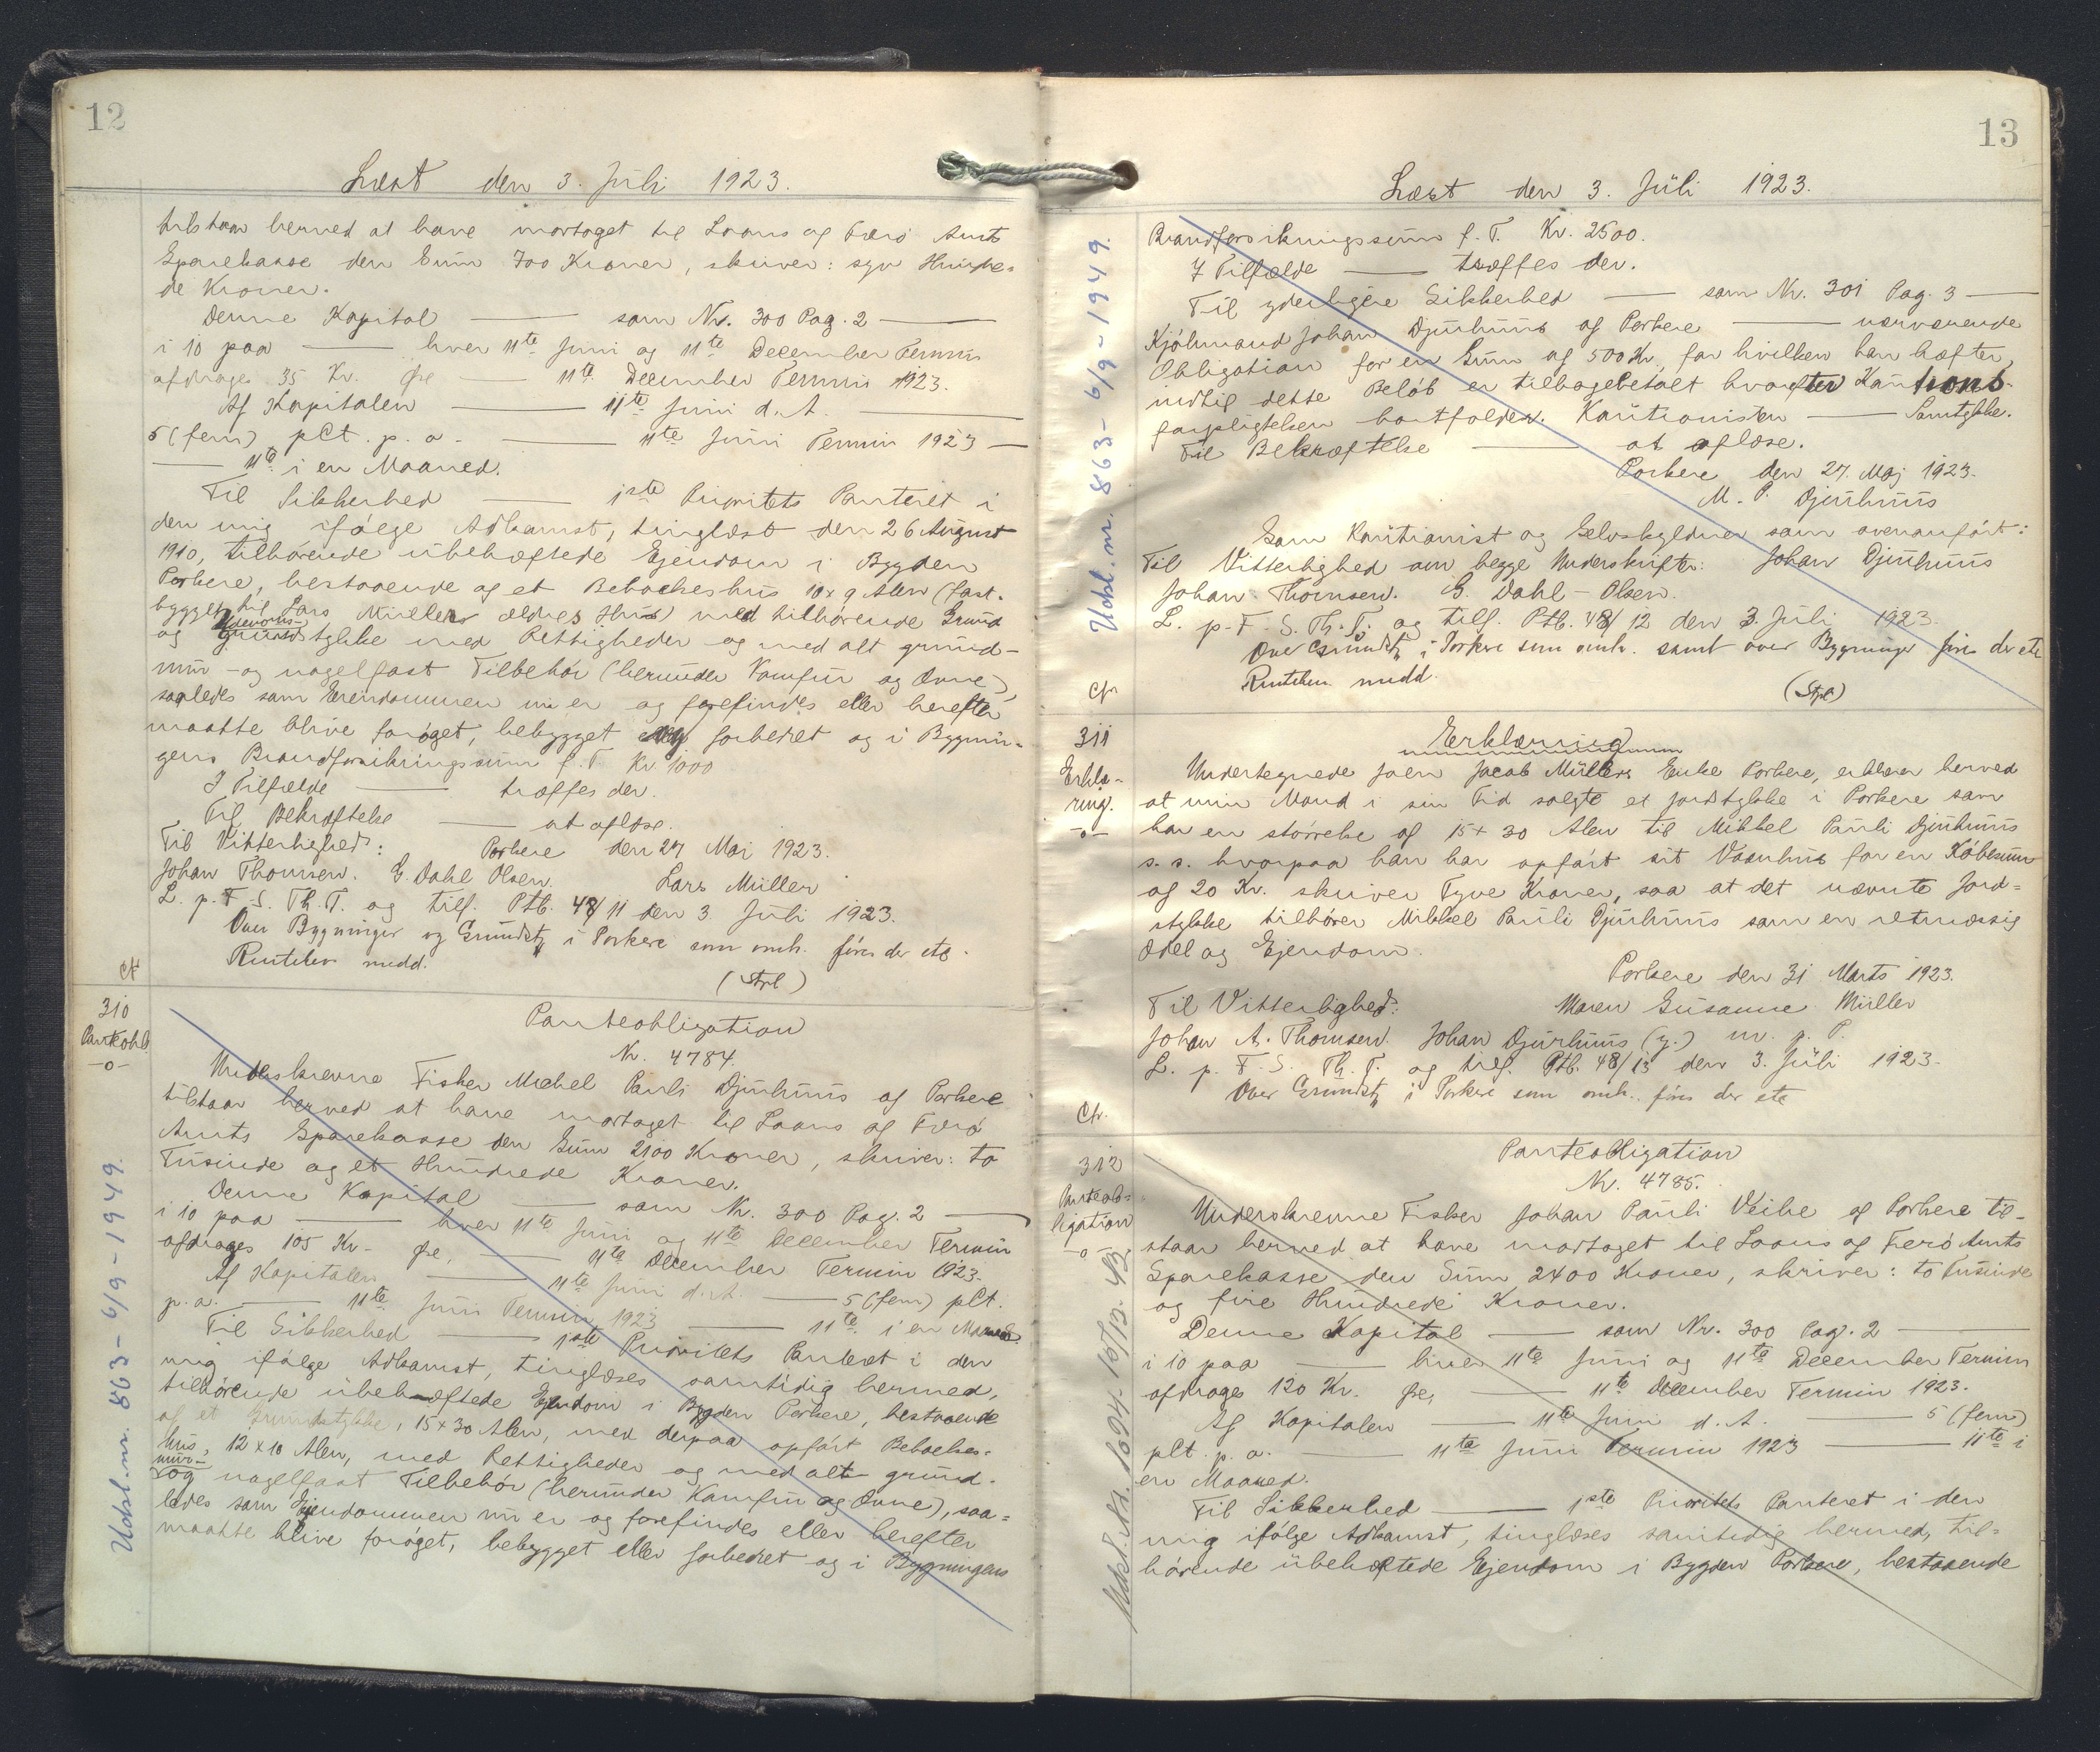 12
Læst den 3. Juli 1923.
tilstaar herved at have modtaget til Laans af Færø Amts
Sparekasse den Sum 700 Kroner, skriver: syv Hundre-
de Kroner.
Denne Kapital — som Nr. 300 Pag. 2 —
i 10 paa — hver 11te Juni og 11te December Termin
afdrages 35 Kr. Øre — 11te December Termin 1923.
Af Kapitalen — 11te Juni d. A. —
5 (fem) pCt. p. a. — 11te Juni Termin 1923 —
— 11te i en Maaned.
Til Sikkerhed — 1ste Prioritets Panteret i
den mig ifølge Adkomst, tinglæst den 26 August
1910, tilhørende ubehæftede Ejendom i Bygden
Porkere, bestaaende af et Beboelseshus 10 x 9 Alen (fast-
bygget til Lars Müllers ældres Hus) med tilhørende Grund
og Grundstykke med Rettigheder og med alt grund-
mur- og nagelfast Tilbehør (herunder Komfur og Ovne),
saaledes som Ejendommen nu er og forefindes eller herefter
maatte blive forøget, bebygget eller forbedret og i Bygnin-
gens Brandforsikringssum f. T. Kr. 1000
I Tilfælde — træffes der.
Til Bekræftelse — at aflæse.
Til Vitterlighed: Porkere den 27 Maj 1923.
Johan Thomsen. G. Dahl Olsen. Lars Müller
L. p. F. S. Th. T. og tilf. Ptb. 48/11 den 3. Juli 1923.
Over Bygninger og Grundst. i Porkere som omh. fires der etc.
Rentebev. medd.
Cfr
310
Panteobl.
-o-
Panteobligation
Nr. 4784.
Underskrevne Fisker Michel Pauli Djurhuus af Porkere
tilstaar herved at have modtaget til Laans af Færø
Amts Sparekasse den Sum 2100 Kroner, skriver: to
Tusinde og et Hundrede Kroner.
Denne Kapital — som Nr. 300 Pag. 2 —
i 10 paa — hver 11te Juni og 11te December Termin
afdrages 105 Kr. Øre, — 11te December Termin 1923.
Af Kapitalen — 11te Juni d. A. — 5 (fem) pCt.
p. a. — 11te Juni Termin 1923 — 11te i en Maaned.
Til Sikkerhed — 1ste Prioritets Panteret i den
mig ifølge Adkomst, tinglæses samtidig hermed,
tilhørende ubehæftede Ejendom i Bygden Porkere, bestaaende
af et Grundstykke, 15 x 30 Alen, med derpaa opført Beboelses-
hus, 12 x 10 Alen, med Rettigheder og med alt grund-
mur- og nagelfast Tilbehør (herunder Komfur og Ovne), saa-
ledes som Ejendommen nu er og forefindes eller herefter
maatte blive forøget, bebygget eller forbedret og i Bygningens
Udsl. nr. 863 - 6/9 - 1949.
13
Læst den 3. Juli 1923.
Brandforsikringssum f. T. Kr. 2500.
I Tilfælde — træffes der.
Til yderligere Sikkerhed — som Nr. 301 Pag. 3 —
Kjøbmand Johan Djurhuus af Porkere — nærværende
Obligation for en Sum af 500 Kr, for hvilken han hæfter,
indtil dette Beløb er tilbagebetalt hvorefter Kautions-
forpligtelsen bortfalder. Kautionisten — Samtykke.
Til Bekræftelse — at aflæse.
Porkere den 27. Maj 1923.
M. P. Djurhuus
Som Kautionist og Selvskyldner som ovenanført:
Til Vitterlighed om begge Underskrifter: Johan Djurhuus
Johan Thomsen. G. Dahl-Olsen.
L. p. F. S. Th. T. og tilf. Ptb. 48/12 den 3. Juli 1923.
Over Grundst. i Porkere som omh. samt over Bygninger fires der etc
Rentebev. medd.
Cfr
Udsl. nr. 863 - 6/9 - 1949.
311
Erklæ-
ring.
-o-
Erklæring
Undertegnede Joen Jacob Müllers Enke Porkere, erklærer herved
at min Mand i sin Tid solgte et Jordstykke i Porkere som
har en størrelse af 15 x 30 Alen til Mikkel Pauli Djurhuus
s. s. hvorpaa han har opført sit Vaanhus for en Købesum
af 20 Kr. skriver Tyve Kroner, saa at det nævnte Jord-
stykke tilhører Mikkel Pauli Djurhuus som en retmæssig
Odel og Ejendom.
Porkere den 31 Marts 1923.
Til Vitterlighed: Maren Susanne Müller
Johan A. Thomsen. Johan Djurhuus (y.) m. p. P.
L. p. F. S. Th. T. og tilf. Ptb. 48/13 den 3. Juli 1923.
Over Grundst. i Porkere som omh. fires der etc
Cfr.
312
Panteob-
ligation
-o-
Panteobligation
Nr. 4785.
Underskrevne Fisker Johan Pauli Veihe af Porkere til-
staar herved at have modtaget til Laans af Færø Amts
Sparekasse den Sum 2400 Kroner, skriver: to Tusinde
og fire Hundrede Kroner.
Denne Kapital — som Nr. 300 Pag. 2 —
i 10 paa — hver 11te Juni og 11te December Termin
afdrages 120 Kr. Øre, — 11te December Termin 1923.
Af Kapitalen — 11te Juni d. A. — 5 (fem)
pCt. p. a. — 11te Juni Termin 1923 — 11te i
en Maaned.
Til Sikkerhed — 1ste Prioritets Panteret i den
mig ifølge Adkomst, tinglæses samtidig hermed, til-
hørende ubehæftede Ejendom i Bygden Porkere, bestaaende
Udsl. Nr. 1694. 10/12. 43.